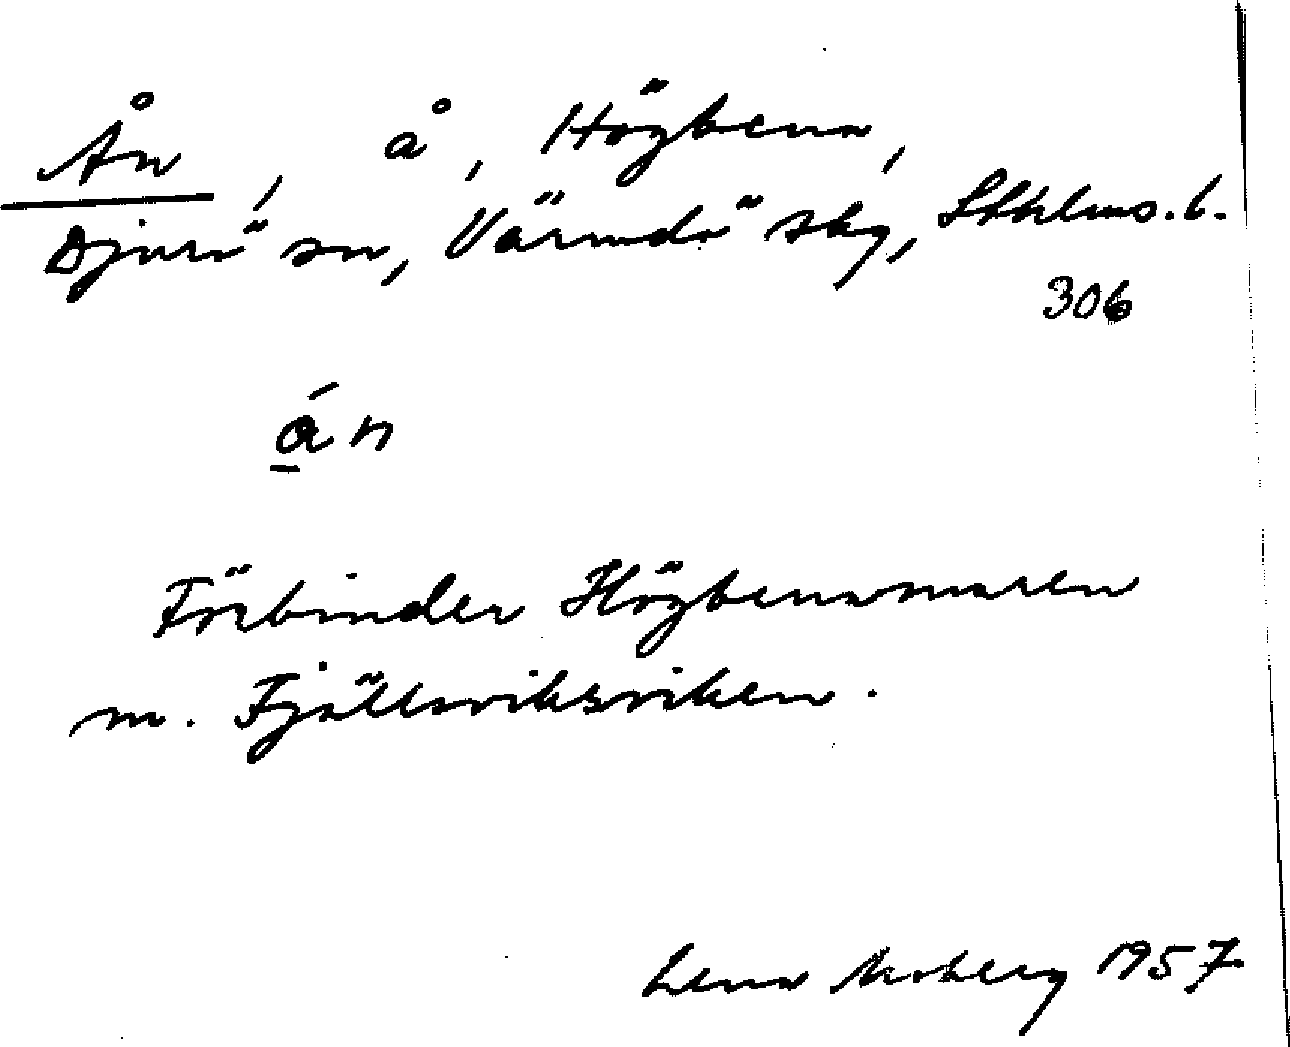 Ån, å, Högbena,
Djurö sn, Värmdö skg, Sthlms. l.
306
án
Förbinder Högbenamaren
m. Fjällsviksviken.
Lena Moberg 1957